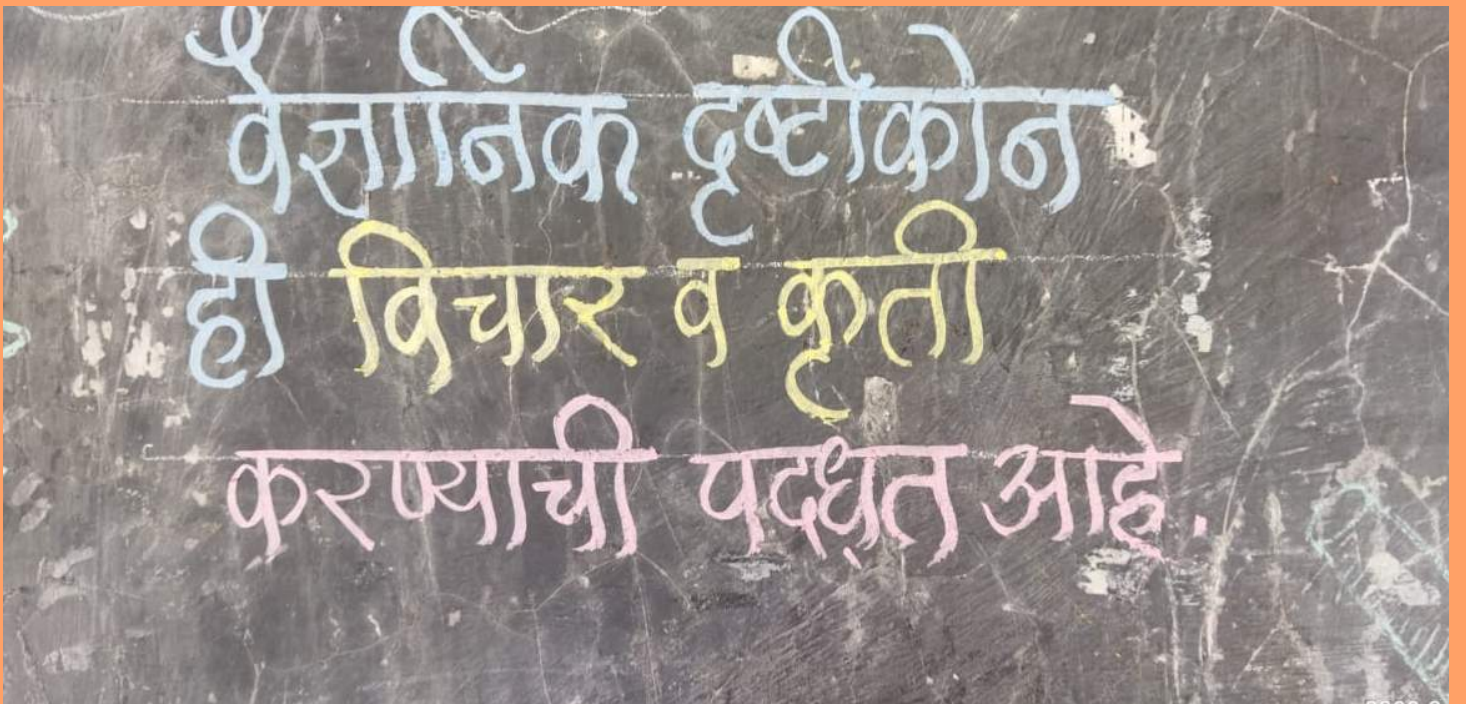 वैज्ञानिक दृष्टीकोन
ही विचार व कृती
करण्याची पदध्त आहे.